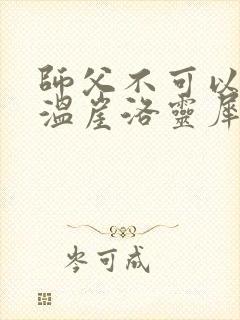 師父不可以
溫崖洛靈犀
岑可咸